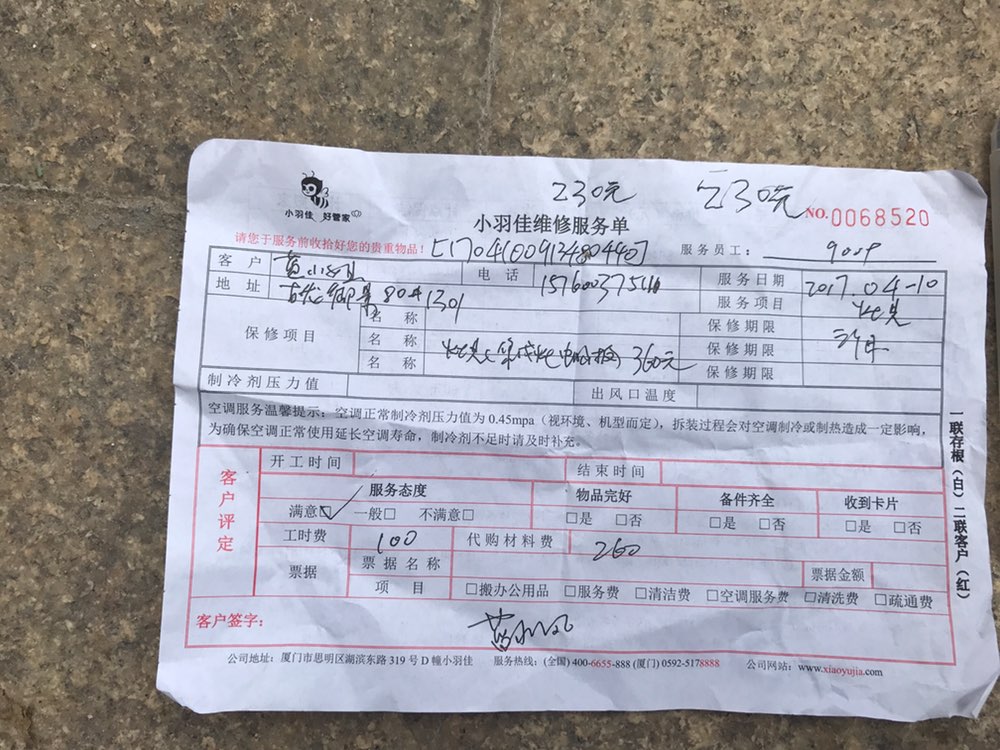 230元
NO.0068520
小羽佳 好管家
小羽佳维修服务单
请您于服务前收拾好您的贵重物品！
服务员工：
客户 电话 服务日期 2017.04-10
地址 1301 服务项目
保修项目 名称 保修期限
名称 保修期限
名称 360元 保修期限
制冷剂压力值 出风口温度
空调服务温馨提示：空调正常制冷剂压力值为 0.45mpa（视环境、机型而定），拆装过程会对空调制冷或制热造成一定影响，
为确保空调正常使用延长空调寿命，制冷剂不足时请及时补充。
客户评定
开工时间 结束时间
服务态度 物品完好 备件齐全 收到卡片
满意☑ 一般□ 不满意□ □是 □否 □是 □否 □是 □否
工时费 100 代购材料费 260
票据 票据名称 票据金额
项目 □搬办公用品 □服务费 □清洁费 □空调服务费 □清洗费 □疏通费
客户签字：
公司地址：厦门市思明区湖滨东路 319 号 D 幢小羽佳 服务热线：(全国) 400-6655-888 (厦门) 0592-5178888 公司网站：www.xiaoyujia.com
一联存根（白）二联客户（红）